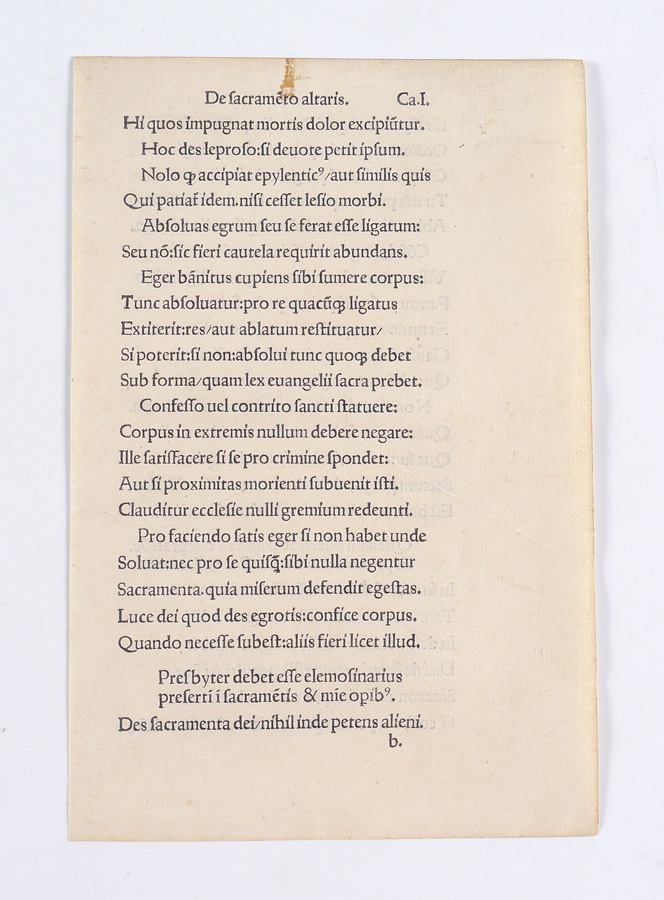 De ſacramēto altaris. Ca.I.
Hi quos impugnat mortis dolor excipiūtur.
Hoc des leproſo:ſi deuote petit ipſum.
Nolo ꝙ accipiat epylenticꝰ/aut ſimilis quis
Qui patiat᷑ idem.niſi ceſſet leſio morbi.
Abſoluas egrum ſeu ſe ferat eſſe ligatum:
Seu nō:ſic fieri cautela requirit abundans.
Eger bānitus cupiens ſibi ſumere corpus:
Tunc abſoluatur:pro re quacūꝗ ligatus
Extiterit:res/aut ablatum reſtituatur/
Si poterit:ſi non:abſolui tunc quoꝗ debet
Sub forma/quam lex euangelii ſacra prebet.
Confeſſo uel contrito ſancti ſtatuere:
Corpus in extremis nullum debere negare:
Ille ſatiſfacere ſi ſe pro crimine ſpondet:
Aut ſi proximitas morienti ſubuenit iſti.
Clauditur eccleſie nulli gremium redeunti.
Pro faciendo ſatis eger ſi non habet unde
Soluat:nec pro ſe quiſꝗ̄:ſibi nulla negentur
Sacramenta.quia miſerum defendit egeſtas.
Luce dei quod des egrotis:confice corpus.
Quando neceſſe ſubeſt:aliis fieri licet illud.
Preſbyter debet eſſe elemoſinarius
preſerti ī ſacramētis & mīe opibꝰ.
Des ſacramenta dei/nihil inde petens alieni.
b.